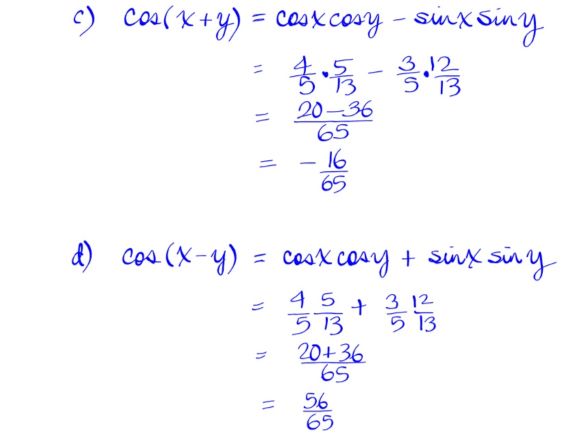 c) cos(x+y) = cosx cosy − sinx siny
= 4/5 • 5/13 − 3/5 • 12/13
= 20−36/65
= − 16/65
d) cos(x−y) = cosx cosy + sinx siny
= 4/5 5/13 + 3/5 12/13
= 20+36/65
= 56/65